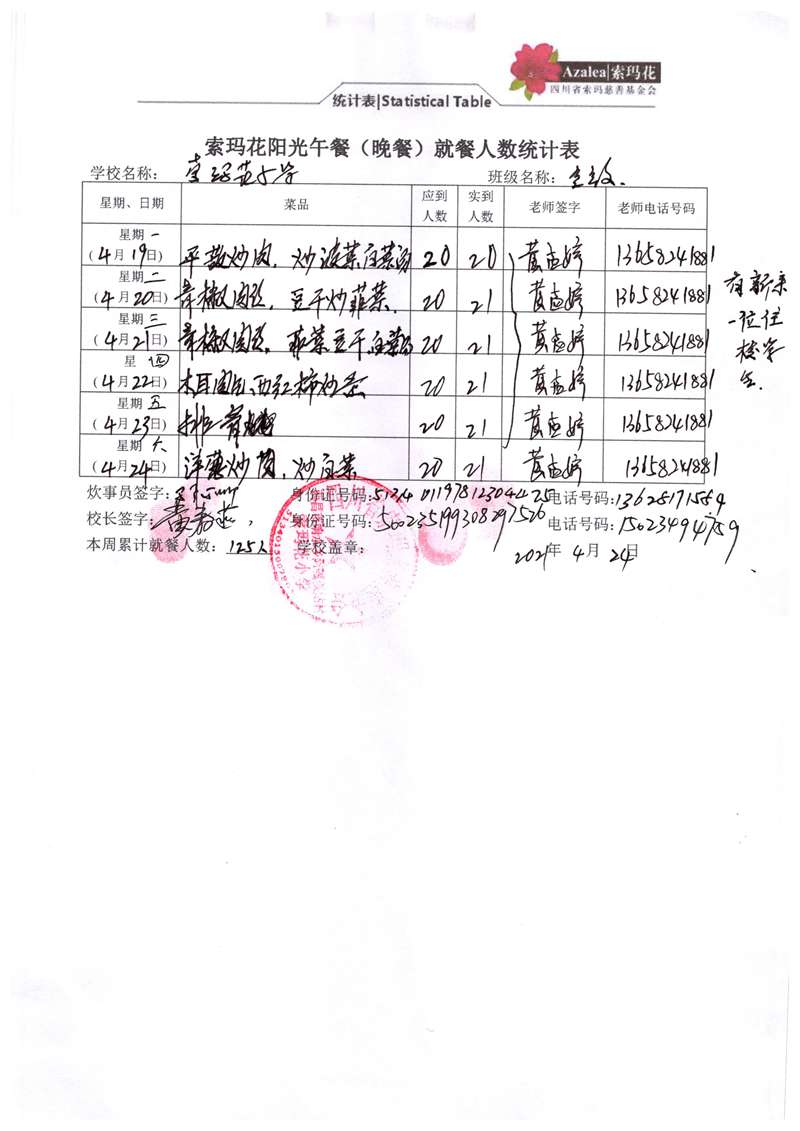 Azalea|索玛花
四川省索玛慈善基金会
统计表|Statistical Table
索玛花阳光午餐（晚餐）就餐人数统计表
学校名称： 索玛花小学 班级名称：
星期、日期 菜品 应到人数 实到人数 老师签字 老师电话号码
星期一
(4月19日) 炒肉，炒菠菜白菜汤 20 20 黄孟婷 13658241881
星期二
(4月20日) 青椒肉丝，豆干炒韭菜. 20 21 黄孟婷 13658241881
星期三
(4月21日) 青椒肉丝，韭菜豆干白菜汤 20 21 黄孟婷 13658241881
星 四
(4月22日) 木耳肉片、西红柿炒蛋 20 21 黄孟婷 13658241881
星期五
(4月23日) 20 21 黄孟婷 13658241881
星期六
(4月24日) 洋葱炒肉，炒白菜 20 21 黄孟婷 13658241881
有新来
一位住
校学
生.
炊事员签字： 身份证号码： 电话号码：13628171584
校长签字： 身份证号码：500235199308297526 电话号码：15023494759
本周累计就餐人数：125人 学校盖章： 2021年4月24日